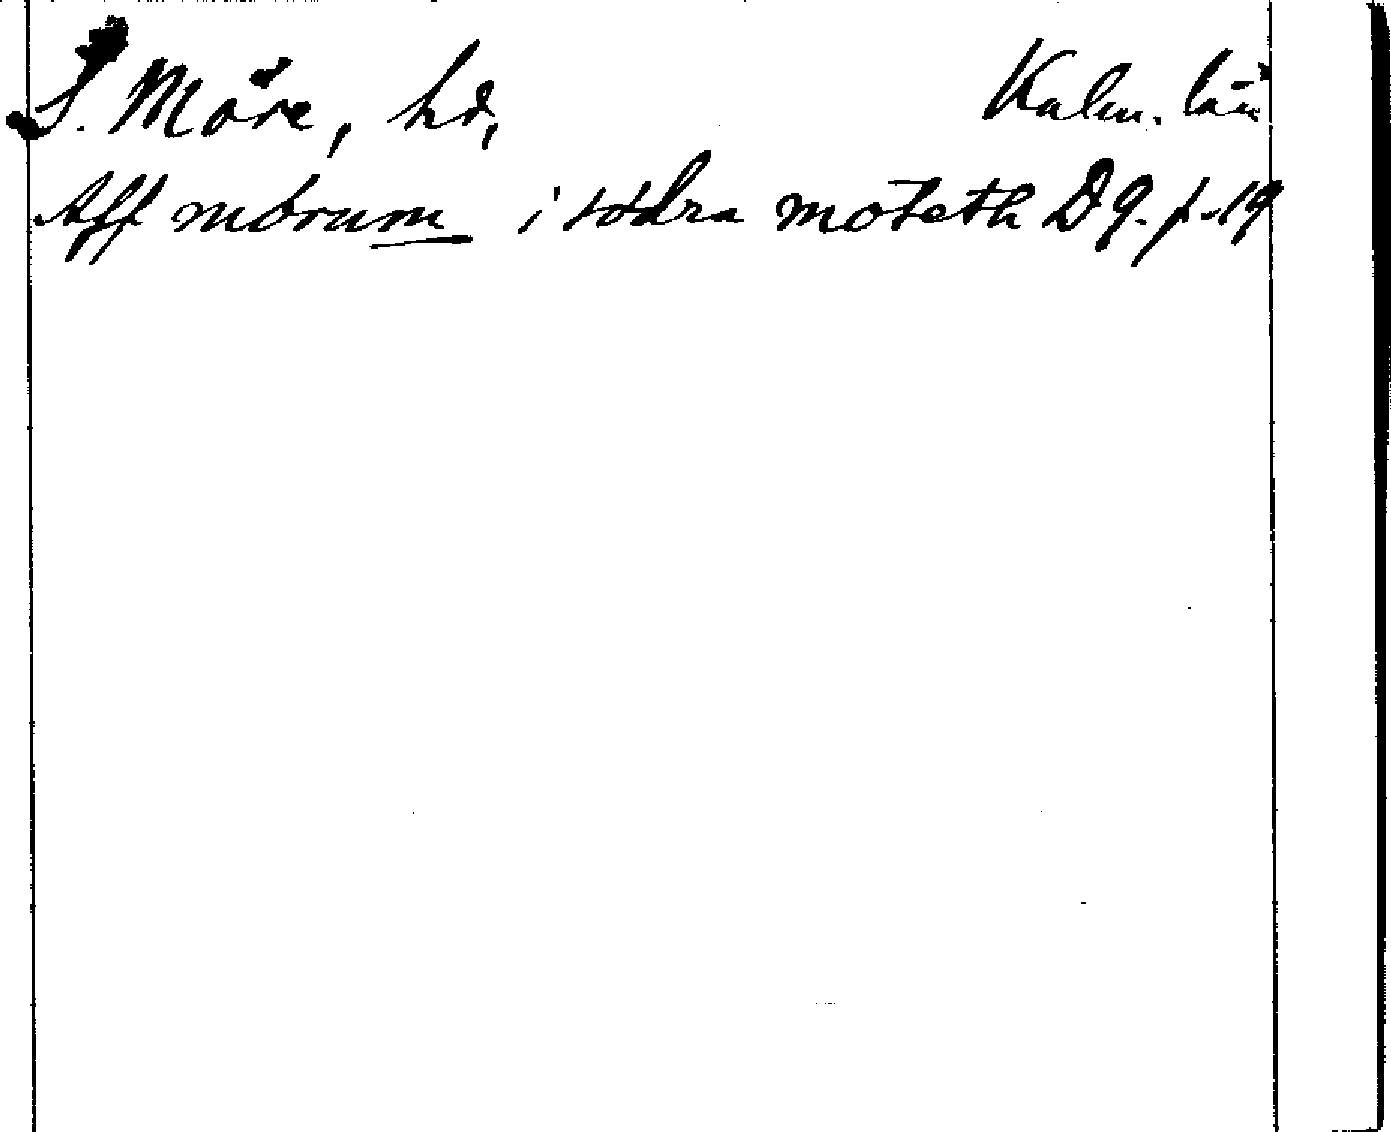 S. Möre, hd, Kalm. län
Aff mörum i södra möteth D9. f. 19